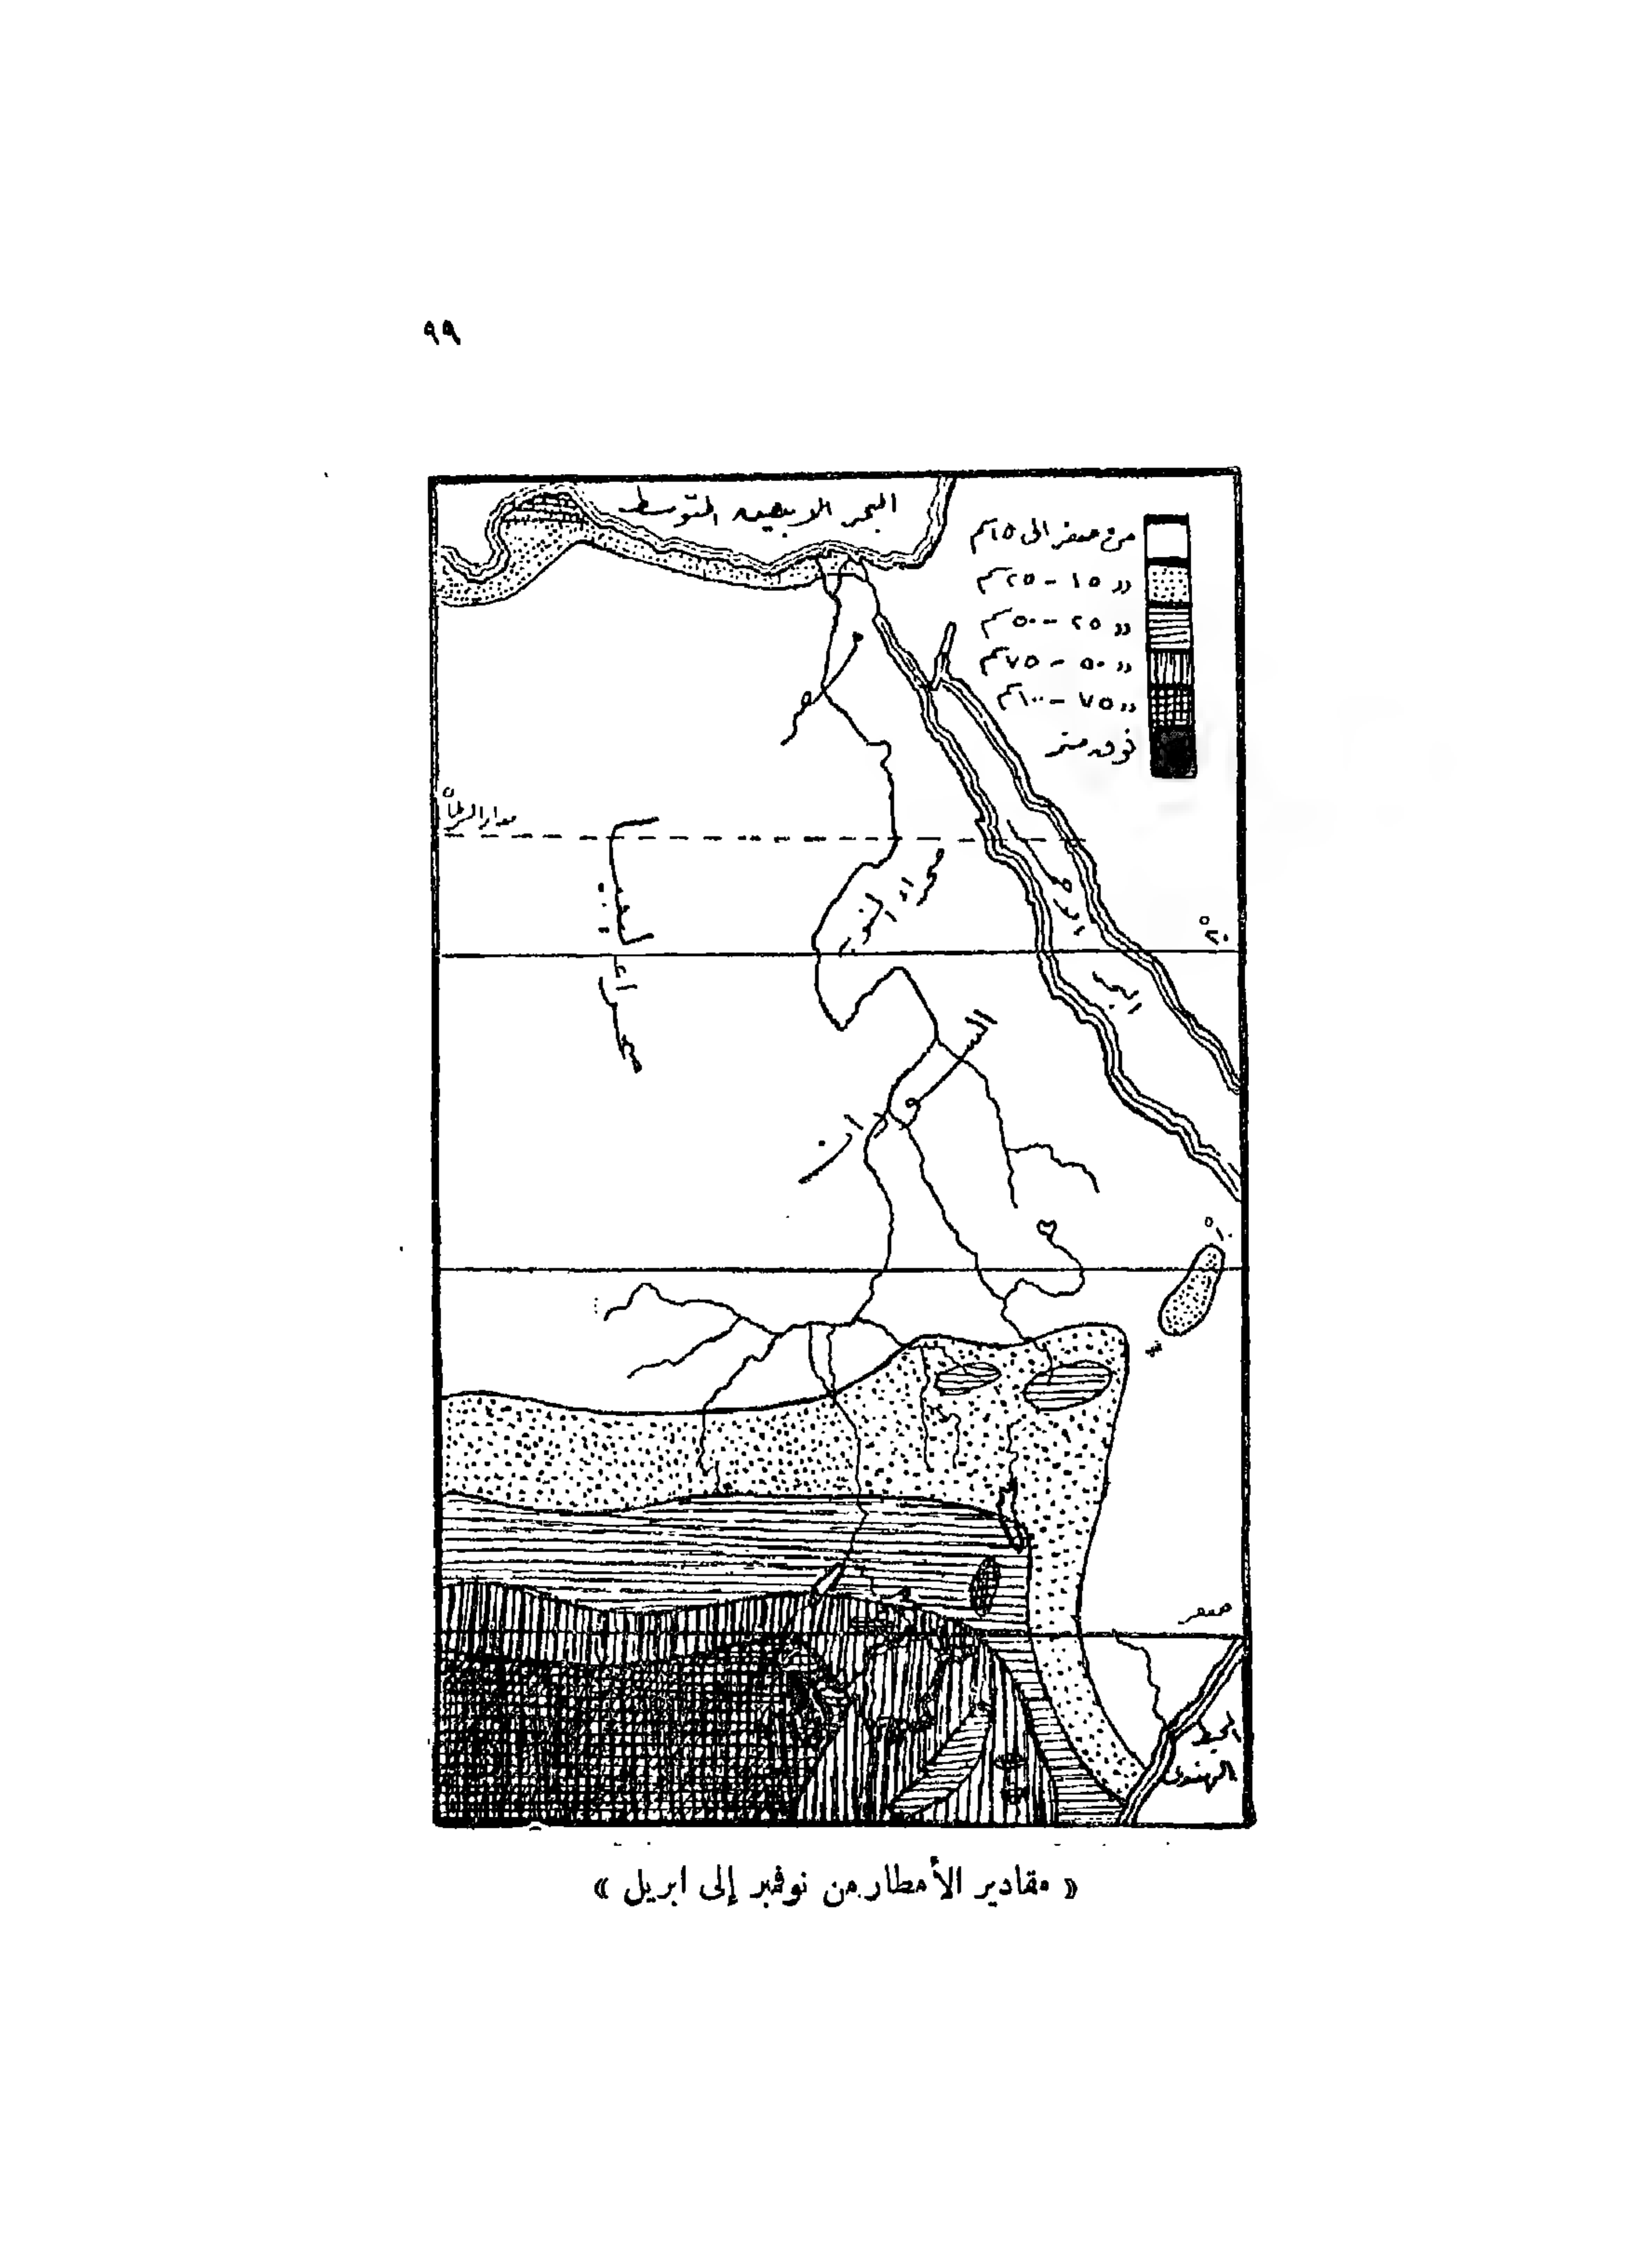 ٩٩
البحر الابيض المتوسط
من صفر الى ١٥سم
〃 ١٥ - ٢٥سم
〃 ٢٥ - ٥٠سم
〃 ٥٠ - ٧٥سم
〃 ٧٥ - ١٠٠سم
فوق متر
مصر
مدار السرطان
صحراء النوبة
البحر الاحمر
٢٠°
صحراء ليبيا
السودان
١٠°
صفر
المحيط
الهندى
« مقادير الأمطار من نوفمبر إلى ابريل »